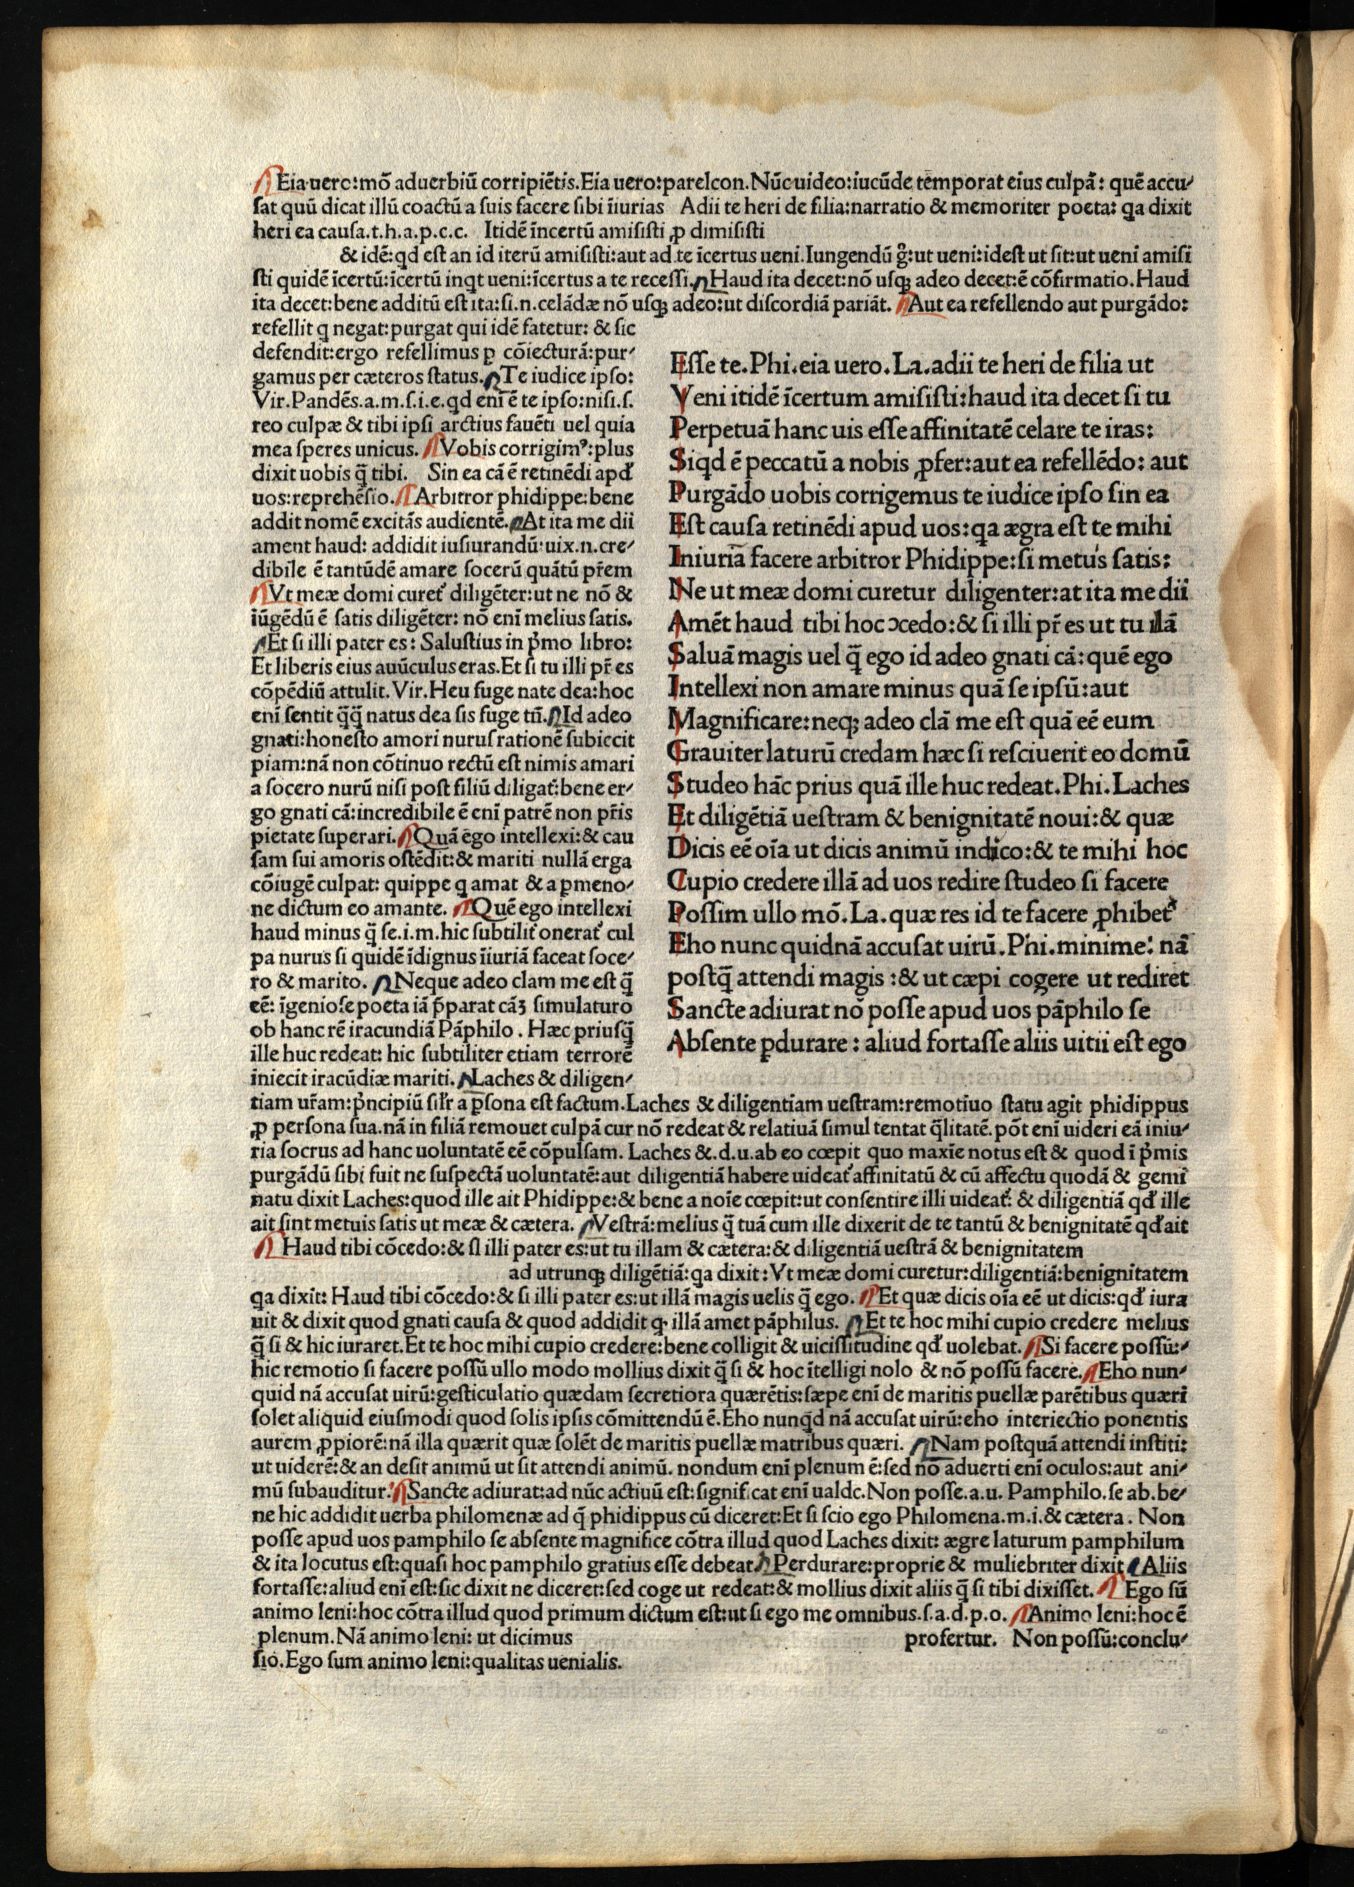 Eia uero:mō aduerbiū corripiētis.Eia uero:parelcon.Nūc uideo:iucūde temporat eius culpā: quē accu/
sat quū dicat illū coactū a suis facere sibi īiurias Adii te heri de filia:narratio & memoriter poeta: qa dixit
heri ea causa.t.h.a.p.c.c. Itidē īncertū amisisti ꝓ dimisisti
& idē:qd est an id iterū amisisti:aut ad te īcertus ueni.Iungendū gͦ:ut ueni:idest ut sit:ut ueni amisi
sti quidē īcertū:īcertū inqt ueni:īcertus a te recessi.Haud ita decet:nō usqꝫ adeo decet:ē cōfirmatio.Haud
ita decet:bene additū est ita:si.n.celādæ nō usqꝫ adeo:ut discordiā pariāt. Aut ea refellendo aut purgādo:
refellit q negat:purgat qui idē fatetur: & sic
defendit:ergo refellimus p cōiecturā:pur/
gamus per cæteros status.Te iudice ipso:
Vir.Pandēs.a.m.s.i.e.qd enī ē te ipso:nisi.s.
reo culpæ & tibi ipsi arctius fauēti uel quia
mea speres unicus. Vobis corrigimꝰ:plus
dixit uobis q̄ tibi. Sin ea cā ē retinēdi apd
uos:reprehēsio.Arbitror phidippe:bene
addit nomē excitās audientē.At ita me dii
ament haud: addidit iusiurandū:uix.n.cre/
dibile ē tantūdē amare socerū quātū pr̄em
Vt meæ domi curet᷑ diligēter:ut ne nō &
iūgēdū ē satis diligēter: nō enī melius satis.
Et si illi pater es: Salustius in p̄mo libro:
Et liberis eius auūculus eras.Et si tu illi pr̄ es
cōpēdiū attulit.Vir.Heu fuge nate dea:hoc
enī sentit q̄q̄ natus dea sis fuge tn̄.Id adeo
gnati:honesto amori nurus rationē subiecit
piam:nā non cōtinuo rectū est nimis amari
a socero nurū nisi post filiū diligat᷑:bene er/
go gnati cā:incredibile ē enī patrē non pr̄is
pietate superari.Quā ego intellexi:& cau
sam sui amoris ostēdit:& mariti nullā erga
cōiugē culpat: quippe q amat & a pmeno/
ne dictum eo amante. Quē ego intellexi
haud minus q̄ se.i.m.hic subtilit᷑ onerat᷑ cul
pa nurus si quidē īdignus īiuriā faceat soce/
ro & marito. Neque adeo clam me est q̄
eē: īgeniose poeta iā p̄parat cāꝫ simulaturo
ob hanc rē iracundiā Pāphilo. Hæc priusq̄
ille huc redeat: hic subtiliter etiam terrorē
iniecit iracūdiæ mariti. Laches & diligen/
Esse te.Phi.eia uero.La.adii te heri de filia ut
Veni itidē īcertum amisisti:haud ita decet si tu
Perpetuā hanc uis esse affinitatē celare te iras:
Siqd ē peccatū a nobis ꝓfer:aut ea refellēdo: aut
Purgādo uobis corrigemus te iudice ipso sin ea
Est causa retinēdi apud uos:qa ægra est te mihi
Iniuriā facere arbitror Phidippe:si metuis satis:
Ne ut meæ domi curetur diligenter:at ita me dii
Amēt haud tibi hoc ↄcedo:& si illi pr̄ es ut tu illā
Saluā magis uel q̄ ego id adeo gnati cā:quē ego
Intellexi non amare minus quā se ipsū:aut
Magnificare:neqꝫ adeo clā me est quā eē eum
Grauiter laturū credam hæc si resciuerit eo domū
Studeo hāc prius quā ille huc redeat.Phi.Laches
Et diligētiā uestram & benignitatē noui:& quæ
Dicis eē oīa ut dicis animū indico:& te mihi hoc
Cupio credere illā ad uos redire studeo si facere
Possim ullo mō.La.quæ res id te facere ꝓhibet᷑
Eho nunc quidnā accusat uirū.Phi.minime: nā
postq̄ attendi magis :& ut cæpi cogere ut rediret
Sancte adiurat nō posse apud uos pāphilo se
Absente pdurare: aliud fortasse aliis uitii est ego
tiam ur̄am:p̄ncipiū silr̄ a psona est factum.Laches & diligentiam uestram:remotiuo statu agit phidippus
ꝓ persona sua.nā in filiā remouet culpā cur nō redeat & relatiuā simul tentat q̄litatē.pōt enī uideri eā iniu/
ria socrus ad hanc uoluntatē eē cōpulsam. Laches &.d.u.ab eo cœpit quo maxīe notus est & quod ī p̄mis
purgādū sibi fuit ne suspectā uoluntatē:aut diligentiā habere uideat᷑ affinitatū & cū affectu quodā & gemi
natu dixit Laches:quod ille ait Phidippe:& bene a noīe cœpit:ut consentire illi uideat᷑: & diligentiā qd ille
ait sint metuis satis ut meæ & cætera. Vestrā:melius q̄ tuā cum ille dixerit de te tantū & benignitatē qd ait
Haud tibi cōcedo:& si illi pater es:ut tu illam & cætera:& diligentiā uestrā & benignitatem
ad utrunqꝫ diligētiā:qa dixit:Vt meæ domi curetur:diligentiā:benignitatem
qa dixit: Haud tibi cōcedo:& si illi pater es:ut illā magis uelis q̄ ego. Et quæ dicis oīa eē ut dicis:qd iura
uit & dixit quod gnati causa & quod addidit q illā amet pāphilus. Et te hoc mihi cupio credere melius
q̄ si & hic iuraret.Et te hoc mihi cupio credere:bene colligit & uicissitudine qd uolebat.Si facere possū:/
hic remotio si facere possū ullo modo mollius dixit q̄ si & hoc ītelligi nolo & nō possū facere.Eho nun/
quid nā accusat uirū:gesticulatio quædam secretiora quærētis:sæpe enī de maritis puellæ parētibus quæri
solet aliquid eiusmodi quod solis ipsis cōmittendū ē.Eho nunqd nā accusat uirū:eho interiectio ponentis
aurem ꝓpiorē:nā illa quærit quæ solēt de maritis puellæ matribus quæri. Nam postquā attendi institi:
ut uiderē:& an desit animū ut sit attendi animū. nondum enī plenum ē:sed nō aduerti enī oculos:aut ani/
mū subauditur.Sancte adiurat:ad nūc actiuū est:significat enī ualde.Non posse.a.u. Pamphilo.se ab.be/
ne hic addidit uerba philomenæ ad q̄ phidippus cū diceret:Et si scio ego Philomena.m.i.& cætera. Non
posse apud uos pamphilo se absente magnifice cōtra illud quod Laches dixit: ægre laturum pamphilum
& ita locutus est:quasi hoc pamphilo gratius esse debeat.Perdurare:proprie & muliebriter dixit.Aliis
fortasse:aliud enī est:sic dixit ne diceret:sed coge ut redeat:& mollius dixit aliis q̄ si tibi dixisset. Ego sū
animo leni:hoc cōtra illud quod primum dictum est:ut si ego me omnibus.s.a.d.p.o. Animo leni:hoc ē
plenum.Nā animo leni: ut dicimus profertur. Non possū:conclu/
sio.Ego sum animo leni:qualitas uenialis.